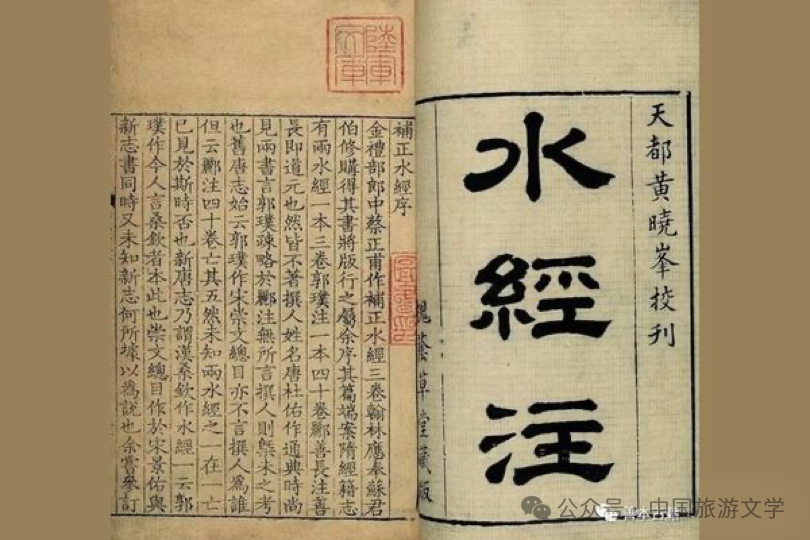 天都黃曉峯挍刊
水經注
槐蔭草堂藏版
補正水經序
金禮部郎中蔡正甫作補正水經三卷翰林應奉蘇君
伯修購得其書將版行之屬余序其篇端案隋經籍志
有兩水經一本三卷郭璞注一本四十卷酈善長注善
長即道元也然皆不著撰人姓名唐杜佑作通典時尚
見兩書言郭璞疎略於酈注無所言撰人則槩未之考
也舊唐志始云郭璞作宋崇文總目亦不言撰人為誰
但云酈注四十卷亡其五然未知兩水經之一在一亡
已見於斯時否也新唐志乃謂漢桑欽作水經一云郭
璞作今人言桑欽者本此也崇文總目作於宋景佑與
新志書同時又未知新志何所據以為說也余嘗參訂
陸軍
公众号 · 中国旅游文学